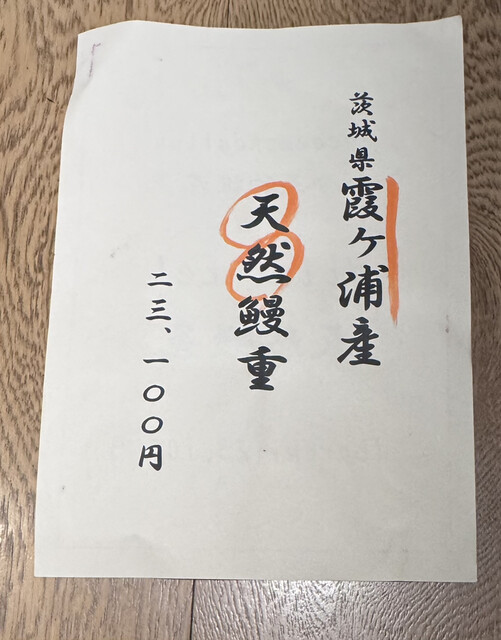 茨城県霞ヶ浦産
天然鰻重
二三、一〇〇円